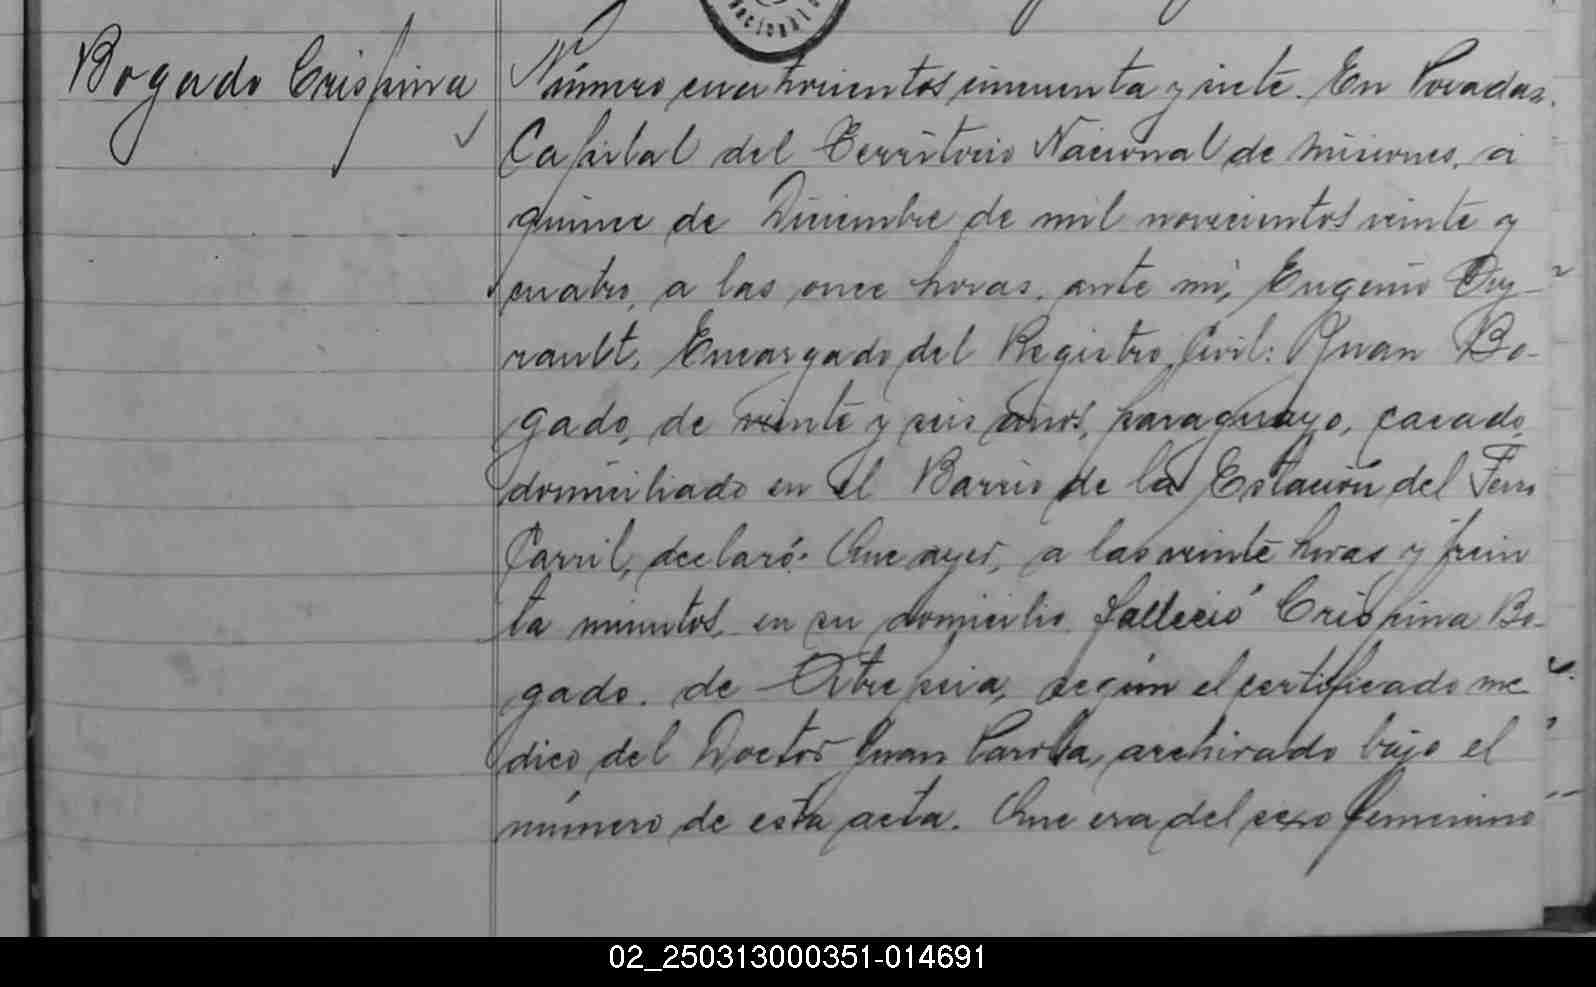 nacional
Bogado Crispina
Número cuatrocientos cincuenta y siete. En Posadas,
Capital del Territorio Nacional de Misiones, a
quince de Diciembre de mil novecientos veinte y
cuatro, a las once horas, ante mí, Eugenio
rault, Encargado del Registro Civil: Juan Bo-
gado, de veinte y seis años, paraguayo, casado,
domiciliado en el Barrio de la Estación del Ferro
Carril, declaró: Que ayer, a las veinte horas y trein
ta minutos, en su domicilio falleció Crispina Bo-
gado. de Atrepsia, según el certificado me
dico del Doctor Juan archivado bajo el
número de esta acta. Que era del sexo femenino
02_250313000351-014691